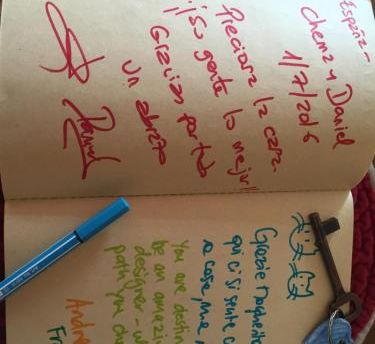 España -
Chema y Daniel
1/7/2016
Preciosa la casa
¡¡su gente lo mejor!!
Gracias por todo
Un abrazo
Daniel
Grazie Margherita
qui ci si sente c
a casa, me
You are destin
be an amazi
designer - w
path you ch
Andre
Fr